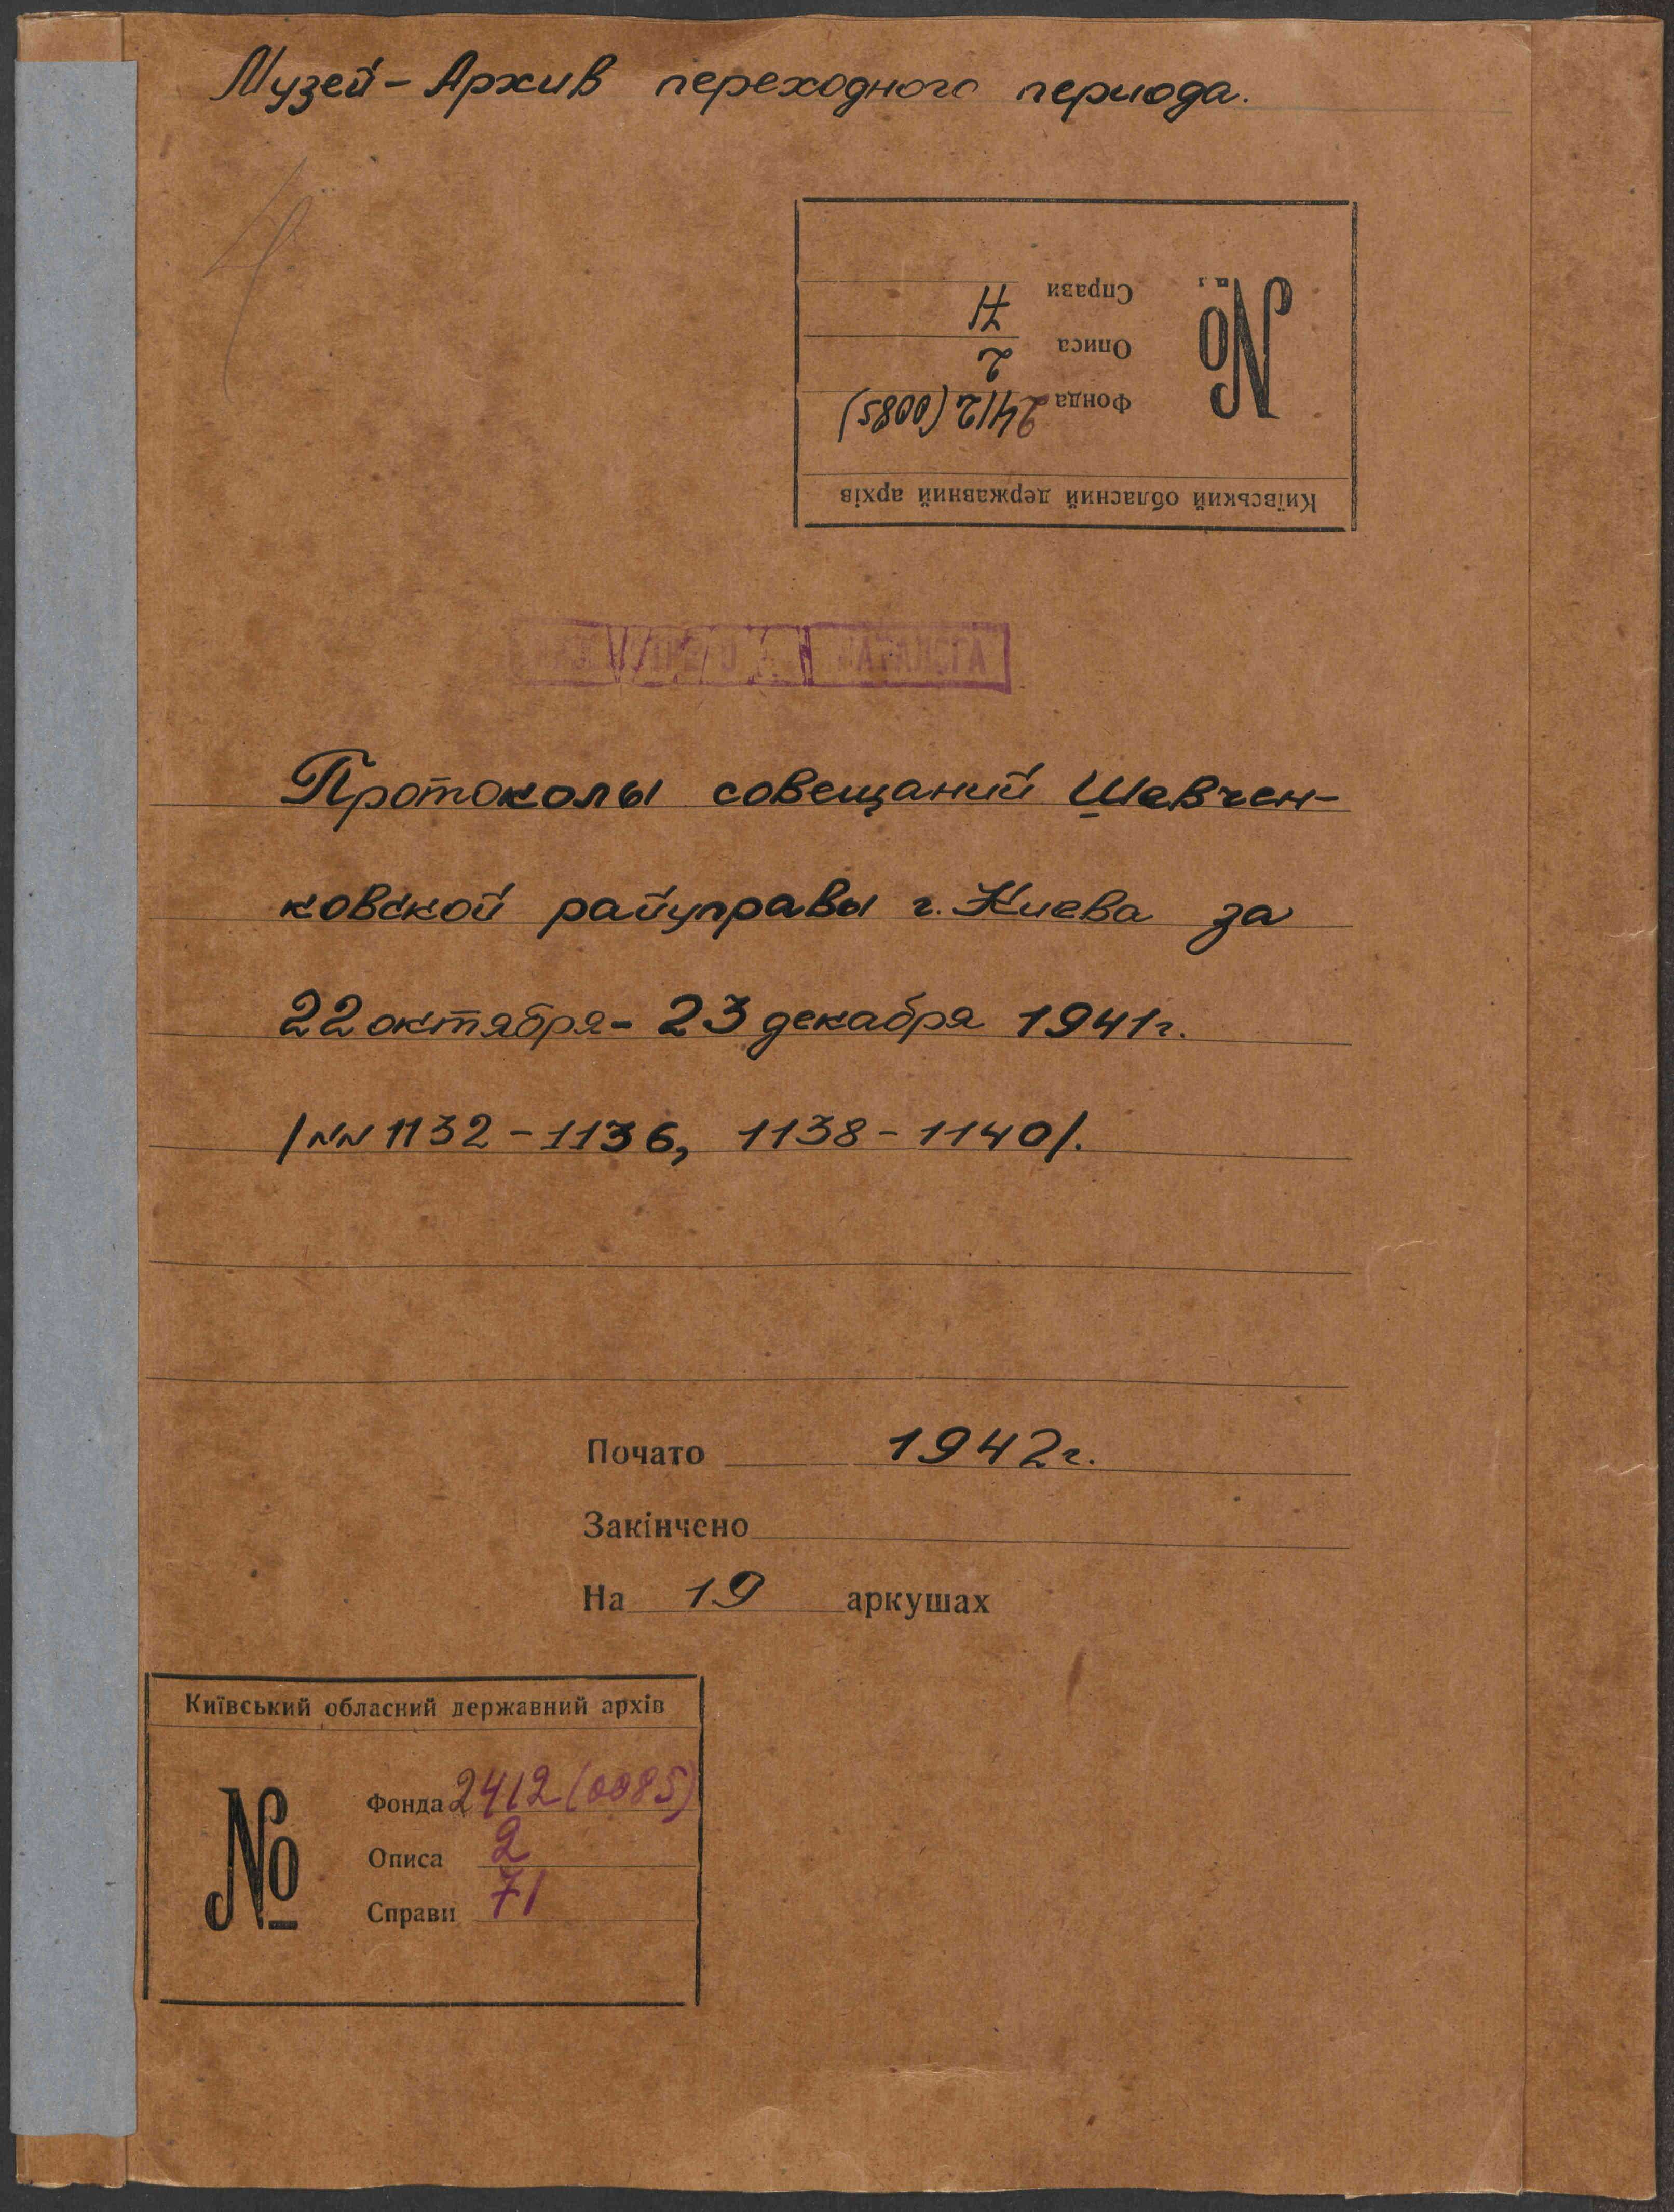 Музей-Архив переходного периода.
Київський обласний державний архів
№
Фонда 2412 (0085)
Описа 2
Справи 71
Протоколы совещаний Шевчен-
ковской райуправы г. Киева за
22 октября - 23 декабря 1941г.
/NN 1132 - 1136, 1138 - 1140/.
Почато 1942г.
Закінчено
На 19 аркушах
Київський обласний державний архів
№
Фонда 2412 (0085)
Описа 2
Справи 71